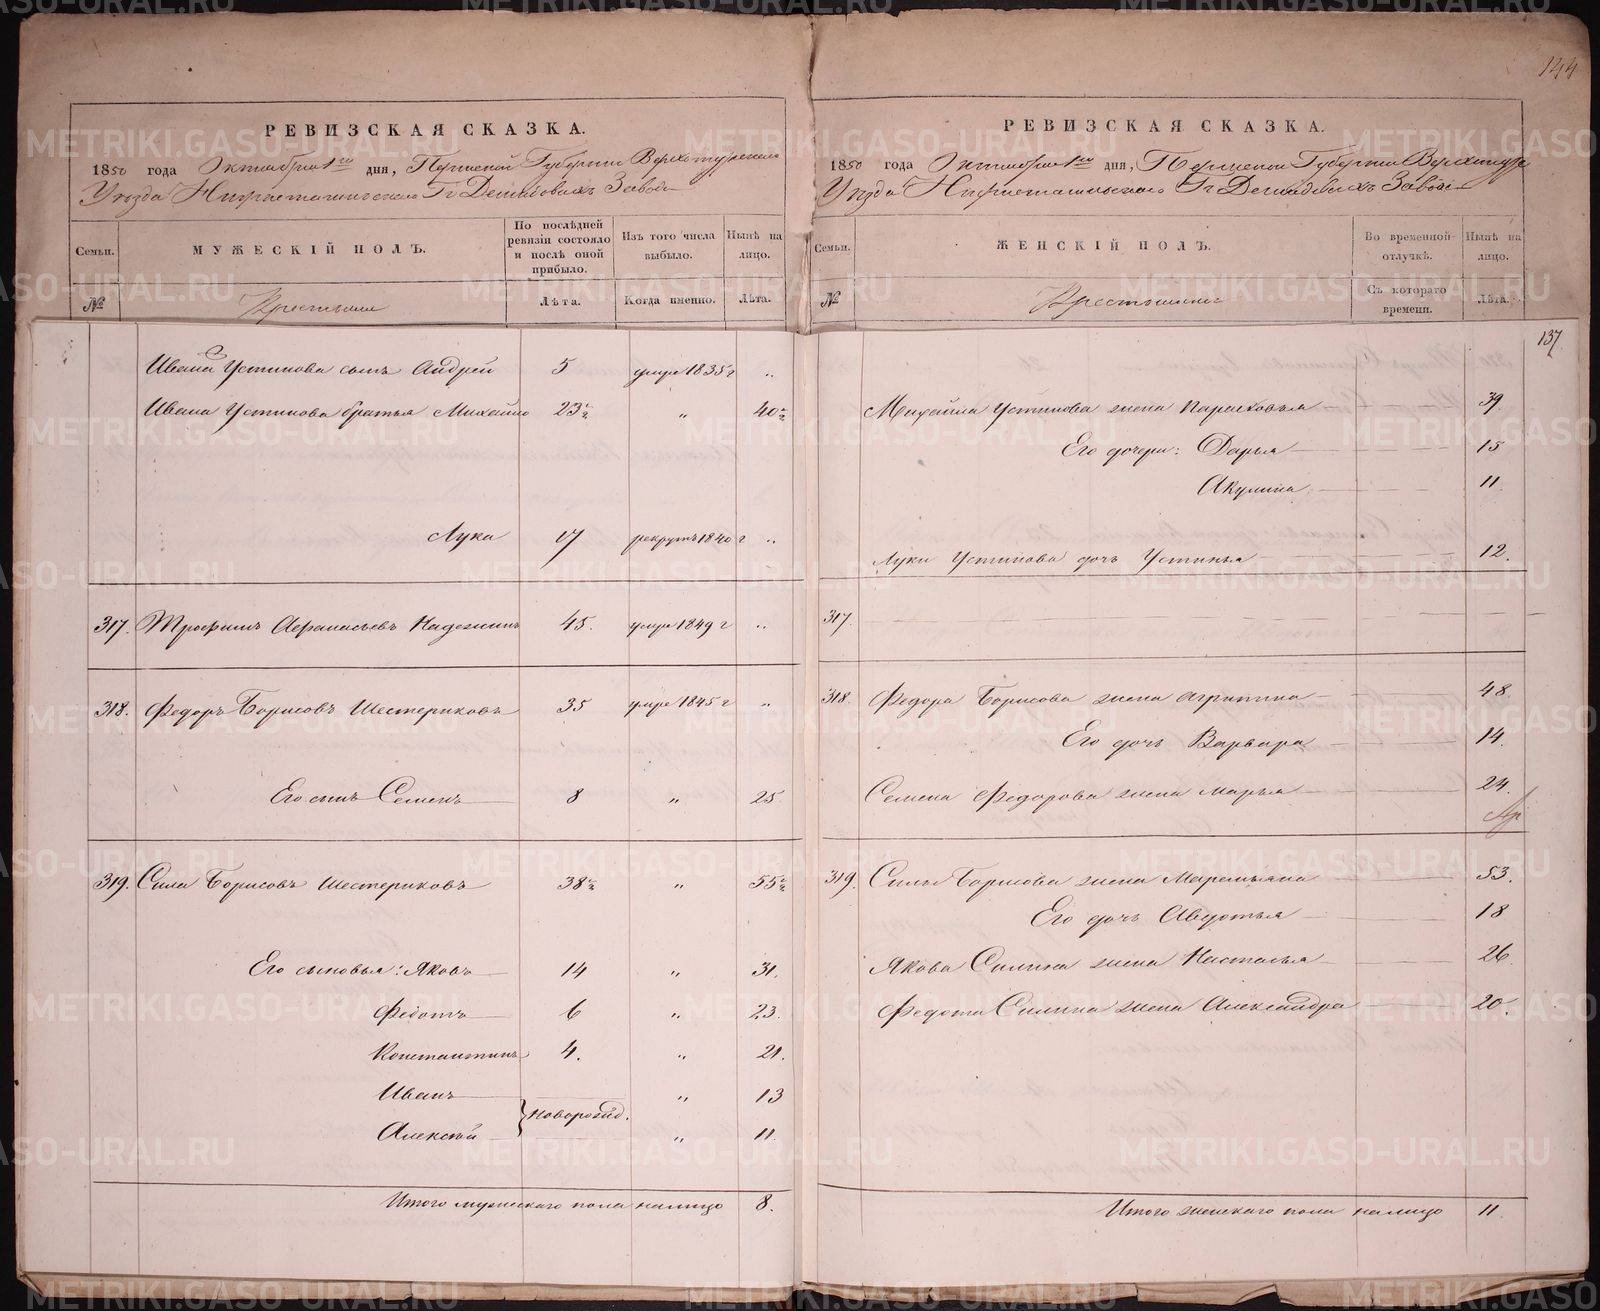 144
РЕВИЗСКАЯ СКАЗКА.
1850 года Октября 1го дня, Пермской Губернии Верхотурского
Уѣзда Нижнетагильского Гг. Демидовыхъ Завода
Семьи.
МУЖЕСКІЙ ПОЛЪ.
По послѣдней ревизіи состояло и послѣ оной прибыло.
Изъ того числа выбыло.
Нынѣ на лицо.
№
Крестьяне
Лѣта.
Когда именно.
Лѣта.
Ивана Устинова сынъ Андрей 5 умре 1835 г „
Ивана Устинова братья Михайло 23½ „ 40½
Лука 17 рекрутъ 1840 г „
317. Трофимъ Афанасьевъ Надежинъ 45. умре 1849 г „
318. Федоръ Борисовъ Шестериковъ 35 умре 1845 г „
Его сынъ Семенъ 8 „ 25
319. Сила Борисовъ Шестериковъ 38½ „ 55½
Его сыновья: Яковъ 14 „ 31.
Федотъ 6 „ 23.
Константинъ 4. „ 21.
Иванъ „ 13
новорожд.
Алексѣй „ 11.
Итого мужескаго пола налицо 8.
РЕВИЗСКАЯ СКАЗКА.
1850 года Октября 1го дня, Пермской Губернии Верхотур
Уѣзда Нижнетагильского Гг. Демидовыхъ Завода
Семьи.
ЖЕНСКІЙ ПОЛЪ.
Во временной отлучкѣ.
Нынѣ на лицо.
№
Крестьянки
Съ котораго времени.
Лѣта.
137
Михайла Устинова жена Парасковья 39
Его дочери: Дарья 15
Акулина 11
Луки Устинова дочь Устинья 12.
317.
318. Федора Борисова жена Агрипина 48.
Его дочь Варвара 14.
Семена Федорова жена Марья 24.
319. Силы Борисова жена Маремьяна 53.
Его дочь Авдотья 18
Якова Силина жена Настасья 26
Федота Силина жена Александра 20.
Итого женскаго пола налицо 11
METRIKI.GASO-URAL.RU